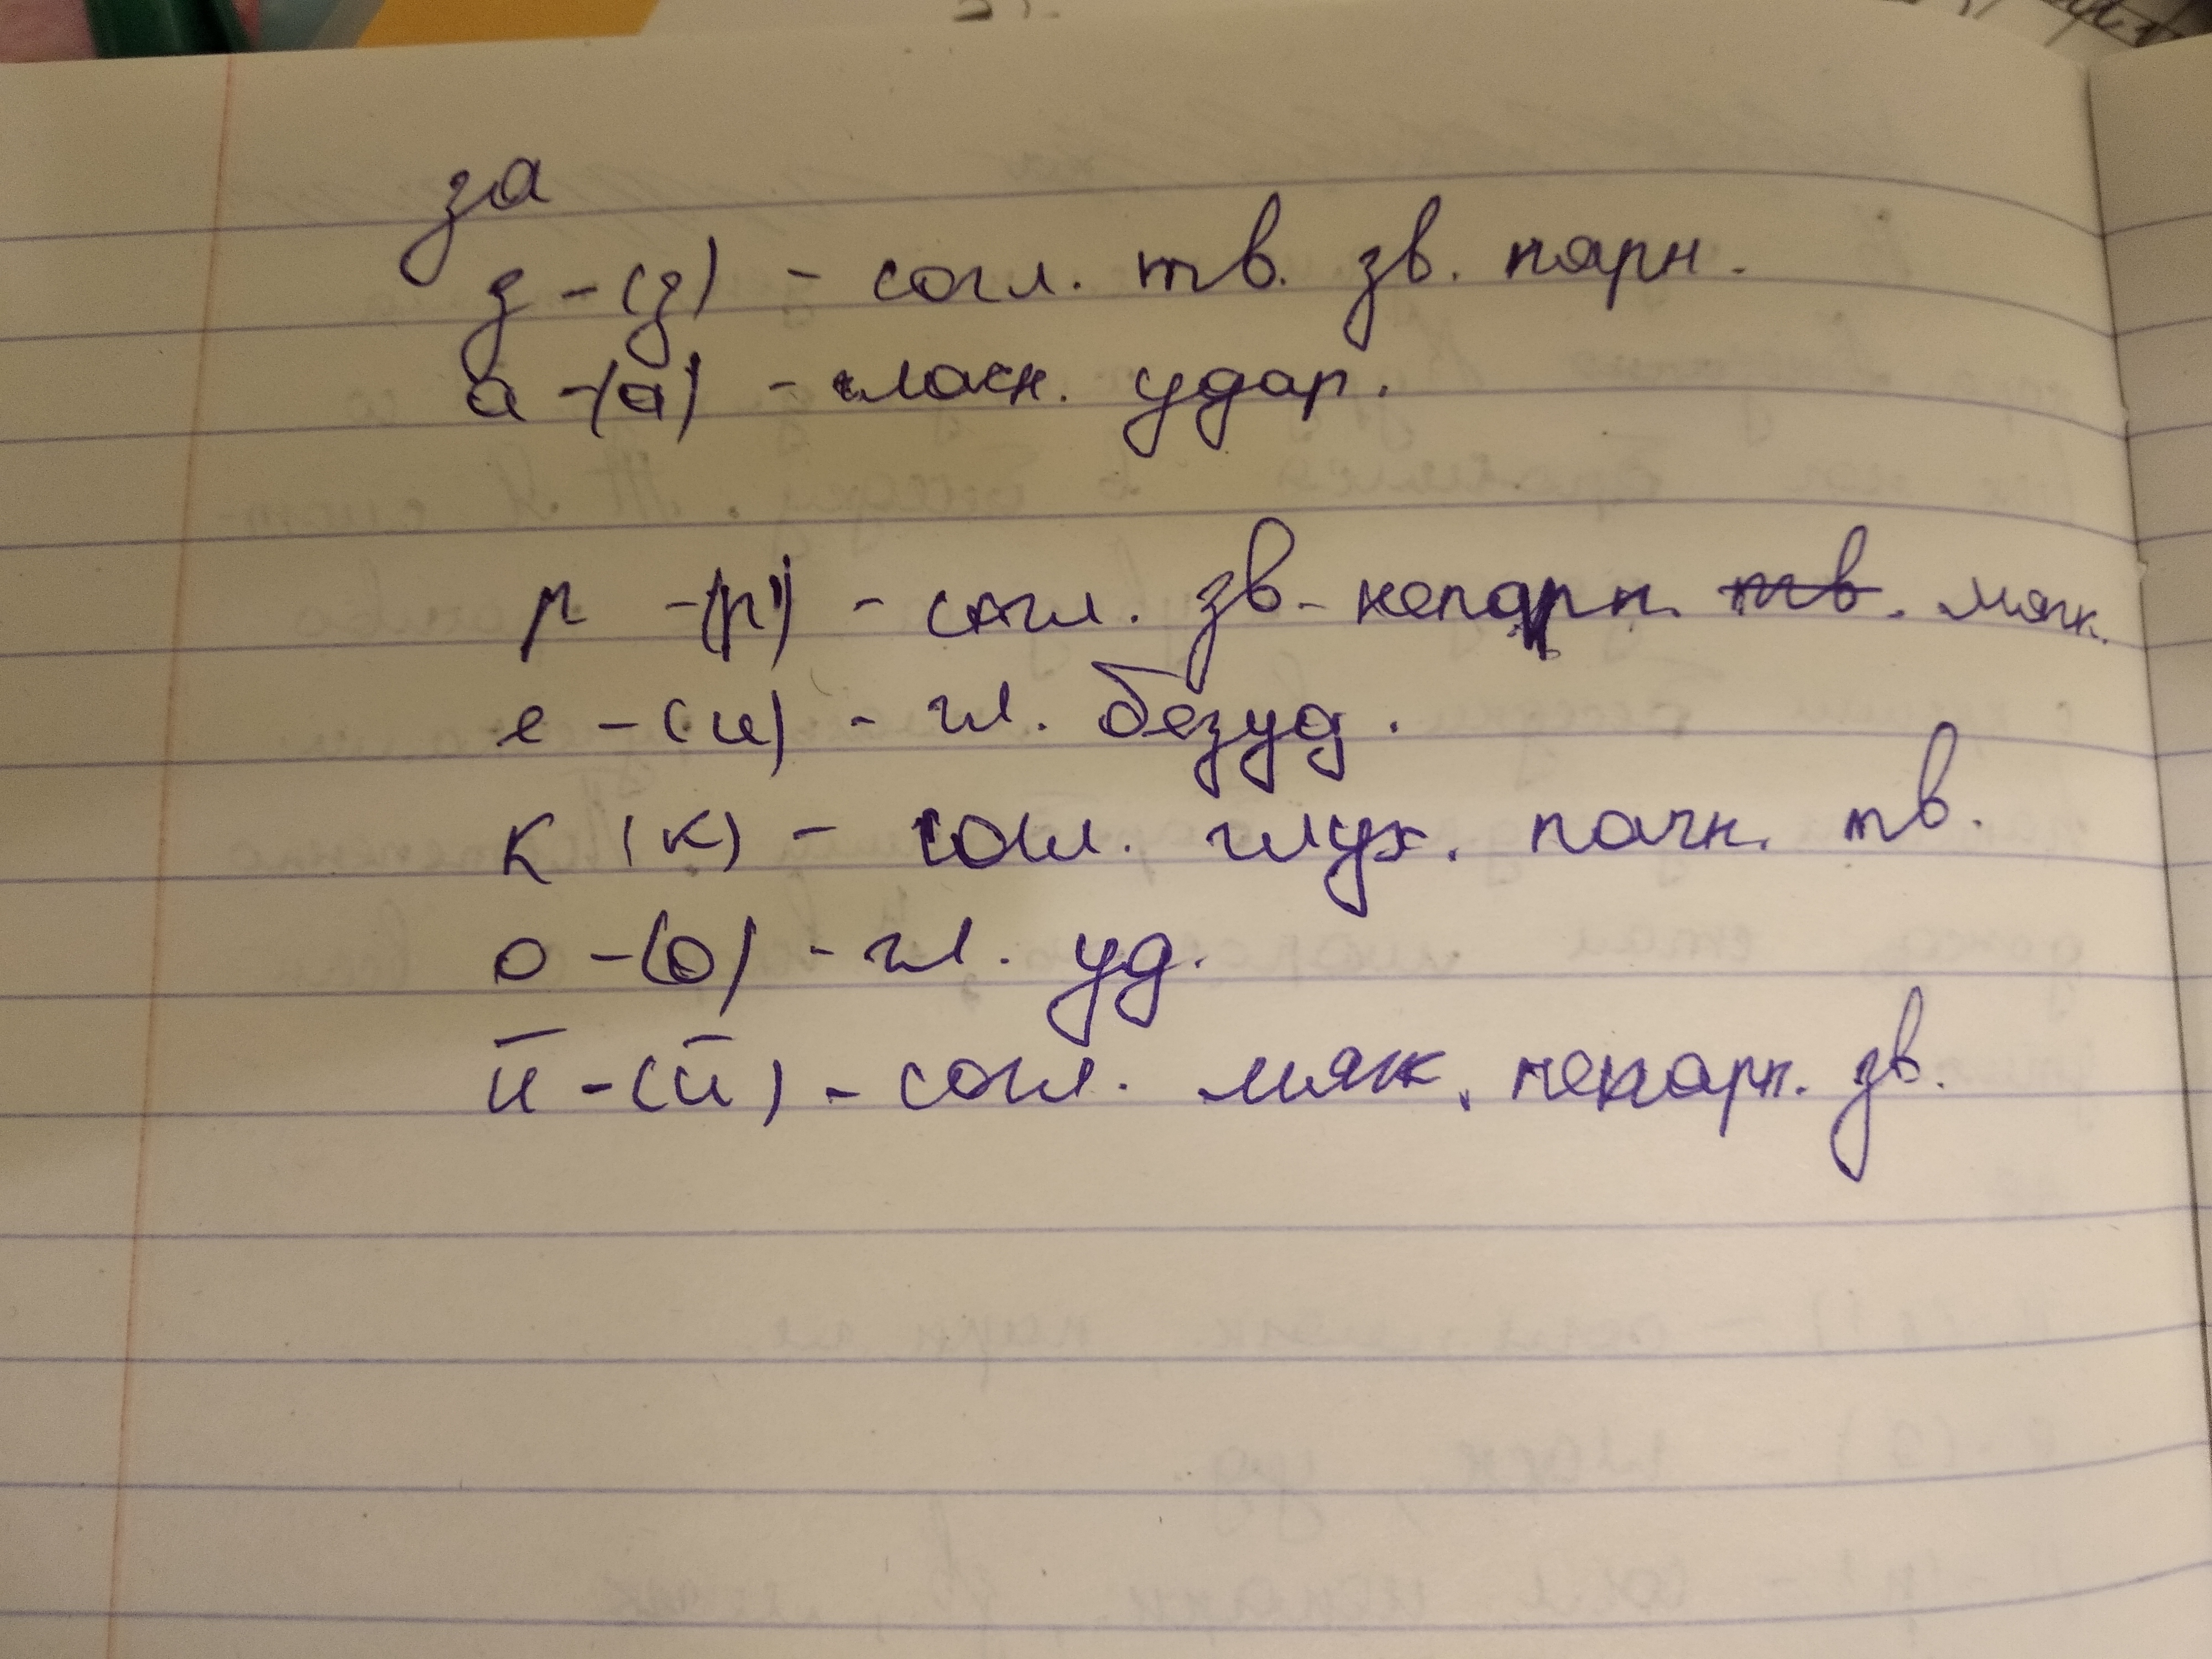 за
з - (з) - согл. тв. зв. парн.
а - (а) - гласн. удар.
р - (р') - согл. зв. непарн. тв. мягк.
е - (и) - гл. безуд.
к (к) - согл. глух. парн. тв.
о - (о) - гл. уд.
й - (й) - согл. мягк. непарн. зв.